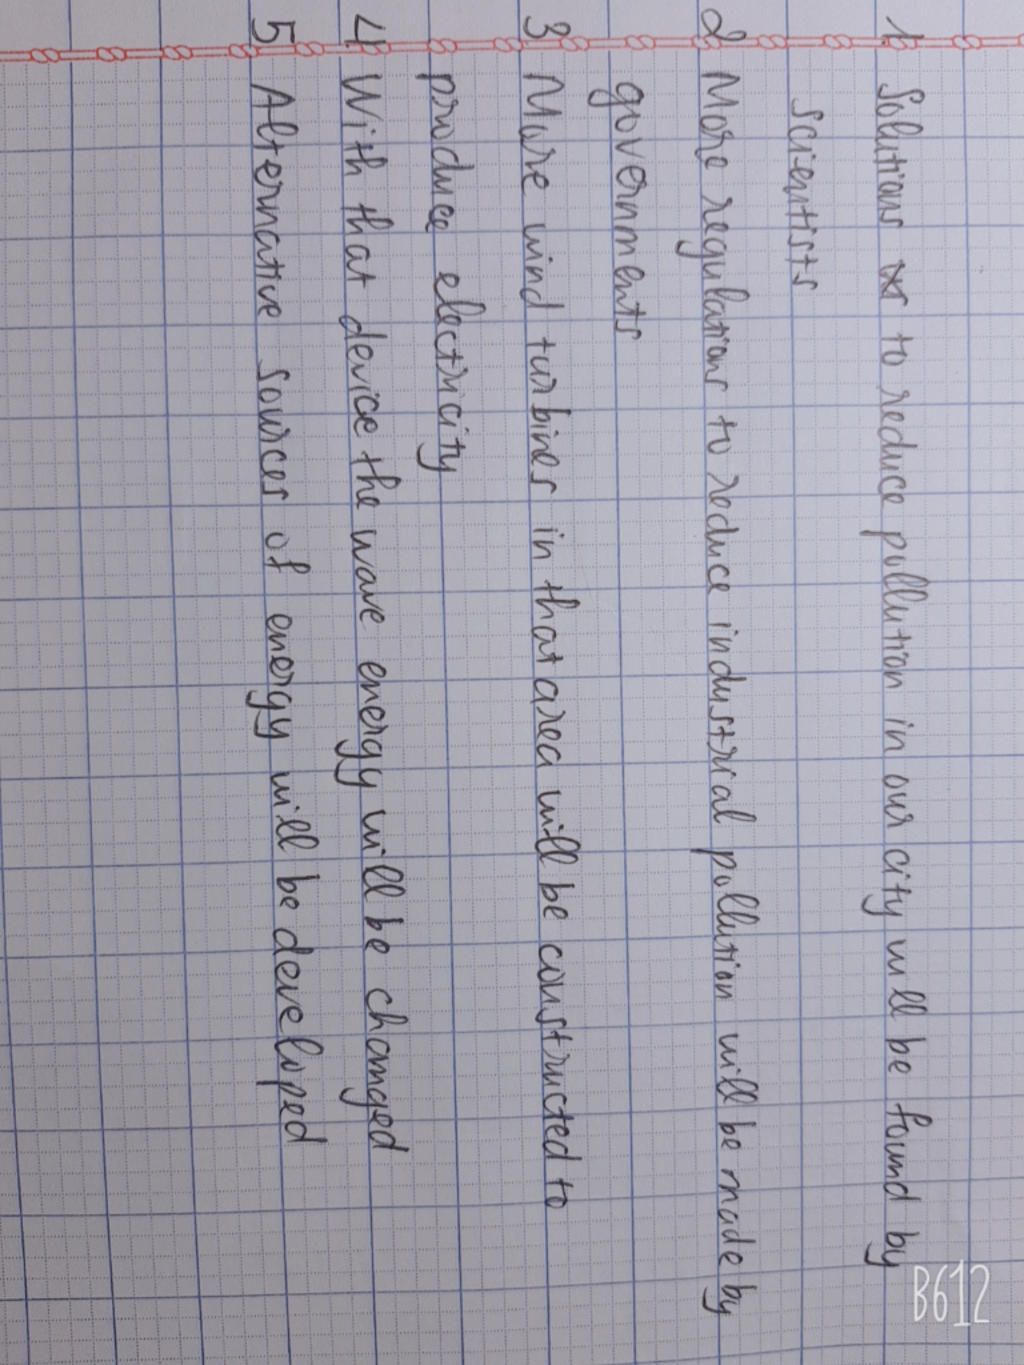 1 Solutions to reduce pollution in our city will be found by
scientists
2 More regulations to reduce industrial pollution will be made by
governments
3 More wind turbines in that area will be constructed to
produce electricity
4 With that device the wave energy will be changed
5 Alternative sources of energy will be developed
B612